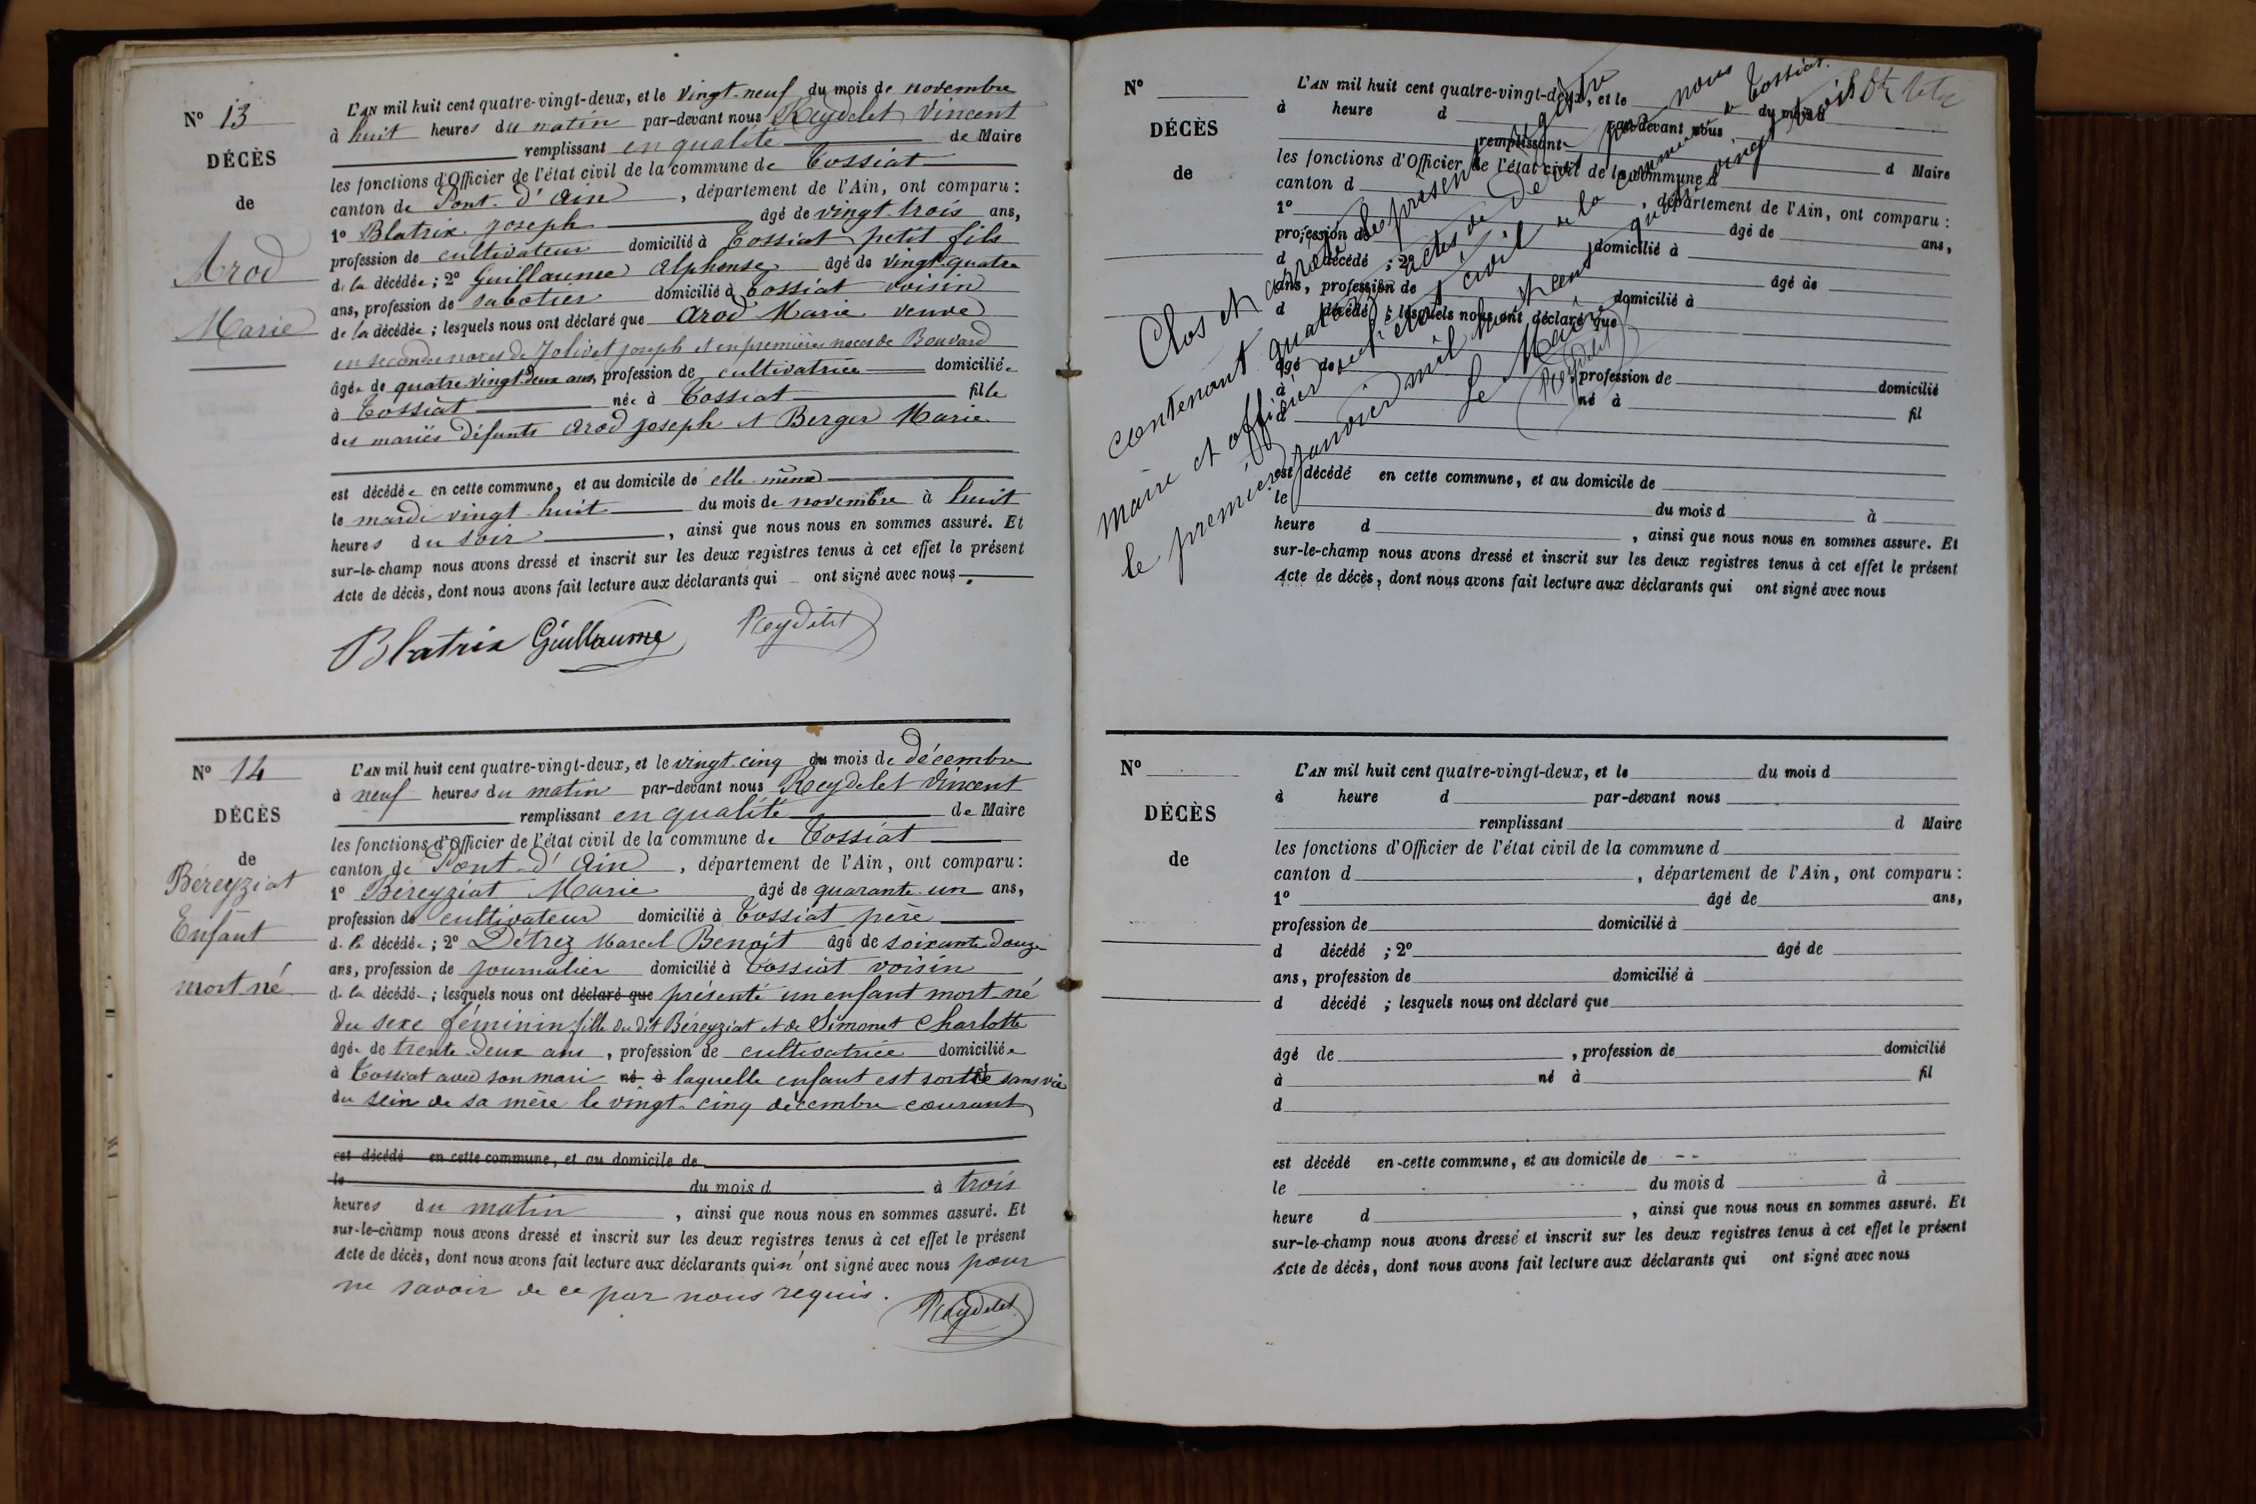 N° 13
DÉCÈS
de
Arod
Marie
L'AN mil huit cent quatre-vingt-deux, et le vingt-neuf du mois de novembre
à huit heures du matin par-devant nous Reydelet Vincent
remplissant en qualité de Maire
les fonctions d'Officier de l'état civil de la commune de Tossiat
canton de Pont-d'Ain, département de l'Ain, ont comparu :
1° Blatrix Joseph âgé de vingt-trois ans,
profession de cultivateur domicilié à Tossiat petit fils
de la décédée ; 2° Guillaume Alphonse âgé de vingt-quatre
ans, profession de sabotier domicilié à Tossiat voisin
de la décédée ; lesquels nous ont déclaré que Arod Marie veuve
en seconde noces de Jolivet Joseph et en premières noces de Bouvard
âgée de quatre-vingt-deux ans, profession de cultivatrice domiciliée
à Tossiat née à Tossiat fille
des mariés défunts Arod Joseph et Berger Marie
est décédée en cette commune, et au domicile de elle-même
le mardi vingt-huit du mois de novembre à huit
heures du soir, ainsi que nous nous en sommes assuré. Et
sur-le-champ nous avons dressé et inscrit sur les deux registres tenus à cet effet le présent
Acte de décès, dont nous avons fait lecture aux déclarants qui ont signé avec nous.
Blatrix Guillaume Reydelet
N° 14
DÉCÈS
de
Béreyziat
Enfant
mort né
L'AN mil huit cent quatre-vingt-deux, et le vingt-cinq du mois de Décembre
à neuf heures du matin par-devant nous Reydelet Vincent
remplissant en qualité de Maire
les fonctions d'Officier de l'état civil de la commune de Tossiat
canton de Pont-d'Ain, département de l'Ain, ont comparu :
1° Béreyziat Marie âgé de quarante-un ans,
profession de cultivateur domicilié à Tossiat père
de la décédée ; 2° Détrez Marcel Benoît âgé de soixante-douze
ans, profession de journalier domicilié à Tossiat voisin
de la décédée ; lesquels nous ont déclaré que présenté un enfant mort-né
du sexe féminin fille du dit Béreyziat et de Simonet Charlotte
âgée de trente-deux ans, profession de cultivatrice domiciliée
à Tossiat avec son mari né à laquelle enfant est sortie sans vie
du sein de sa mère le vingt-cinq décembre courant
est décédé en cette commune, et au domicile de
le du mois d à trois
heures du matin, ainsi que nous nous en sommes assuré. Et
sur-le-champ nous avons dressé et inscrit sur les deux registres tenus à cet effet le présent
Acte de décès, dont nous avons fait lecture aux déclarants qui n'ont signé avec nous pour
ne savoir de ce par nous requis.
Reydelet
N°
DÉCÈS
de
L'AN mil huit cent quatre-vingt-deux, et le du mois d
à heure d par-devant nous
remplissant d Maire
les fonctions d'Officier de l'état civil de la commune d
canton d , département de l'Ain, ont comparu :
1° âgé de ans,
profession de domicilié à
d décédé ; 2° âgé de
ans, profession de domicilié à
d décédé ; lesquels nous ont déclaré que
âgé de , profession de domicilié
à né à fil
d
est décédé en cette commune, et au domicile de
le du mois d à
heure d , ainsi que nous nous en sommes assuré. Et
sur-le-champ nous avons dressé et inscrit sur les deux registres tenus à cet effet le présent
Acte de décès, dont nous avons fait lecture aux déclarants qui ont signé avec nous
Clos et arrêté le présent registre
contenant quatorze actes de décès par nous
maire et officier de l'état civil de la commune de Tossiat
le premier janvier mil huit cent quatre-vingt-trois
Le Maire
Reydelet
N°
DÉCÈS
de
L'AN mil huit cent quatre-vingt-deux, et le du mois d
à heure d par-devant nous
remplissant d Maire
les fonctions d'Officier de l'état civil de la commune d
canton d , département de l'Ain, ont comparu :
1° âgé de ans,
profession de domicilié à
d décédé ; 2° âgé de
ans, profession de domicilié à
d décédé ; lesquels nous ont déclaré que
âgé de , profession de domicilié
à né à fil
d
est décédé en cette commune, et au domicile de
le du mois d à
heure d , ainsi que nous nous en sommes assuré. Et
sur-le-champ nous avons dressé et inscrit sur les deux registres tenus à cet effet le présent
Acte de décès, dont nous avons fait lecture aux déclarants qui ont signé avec nous